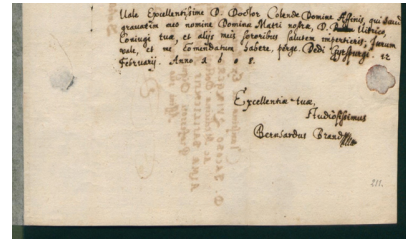 Vale Excellentissime D. Doctor Colende Domine Affinis, qui haud
gravatim meo nomine Domina Matri nostræ, D.
Coniugi tuæ, et alijs meis sororibus salutem impertieris, Iterum
vale, et me comendatum habere, perge. Dedi 12
Februarij. Anno. 1608.
Excellentiæ tuæ,
Studiosissimus
Bernardus Brand
211.